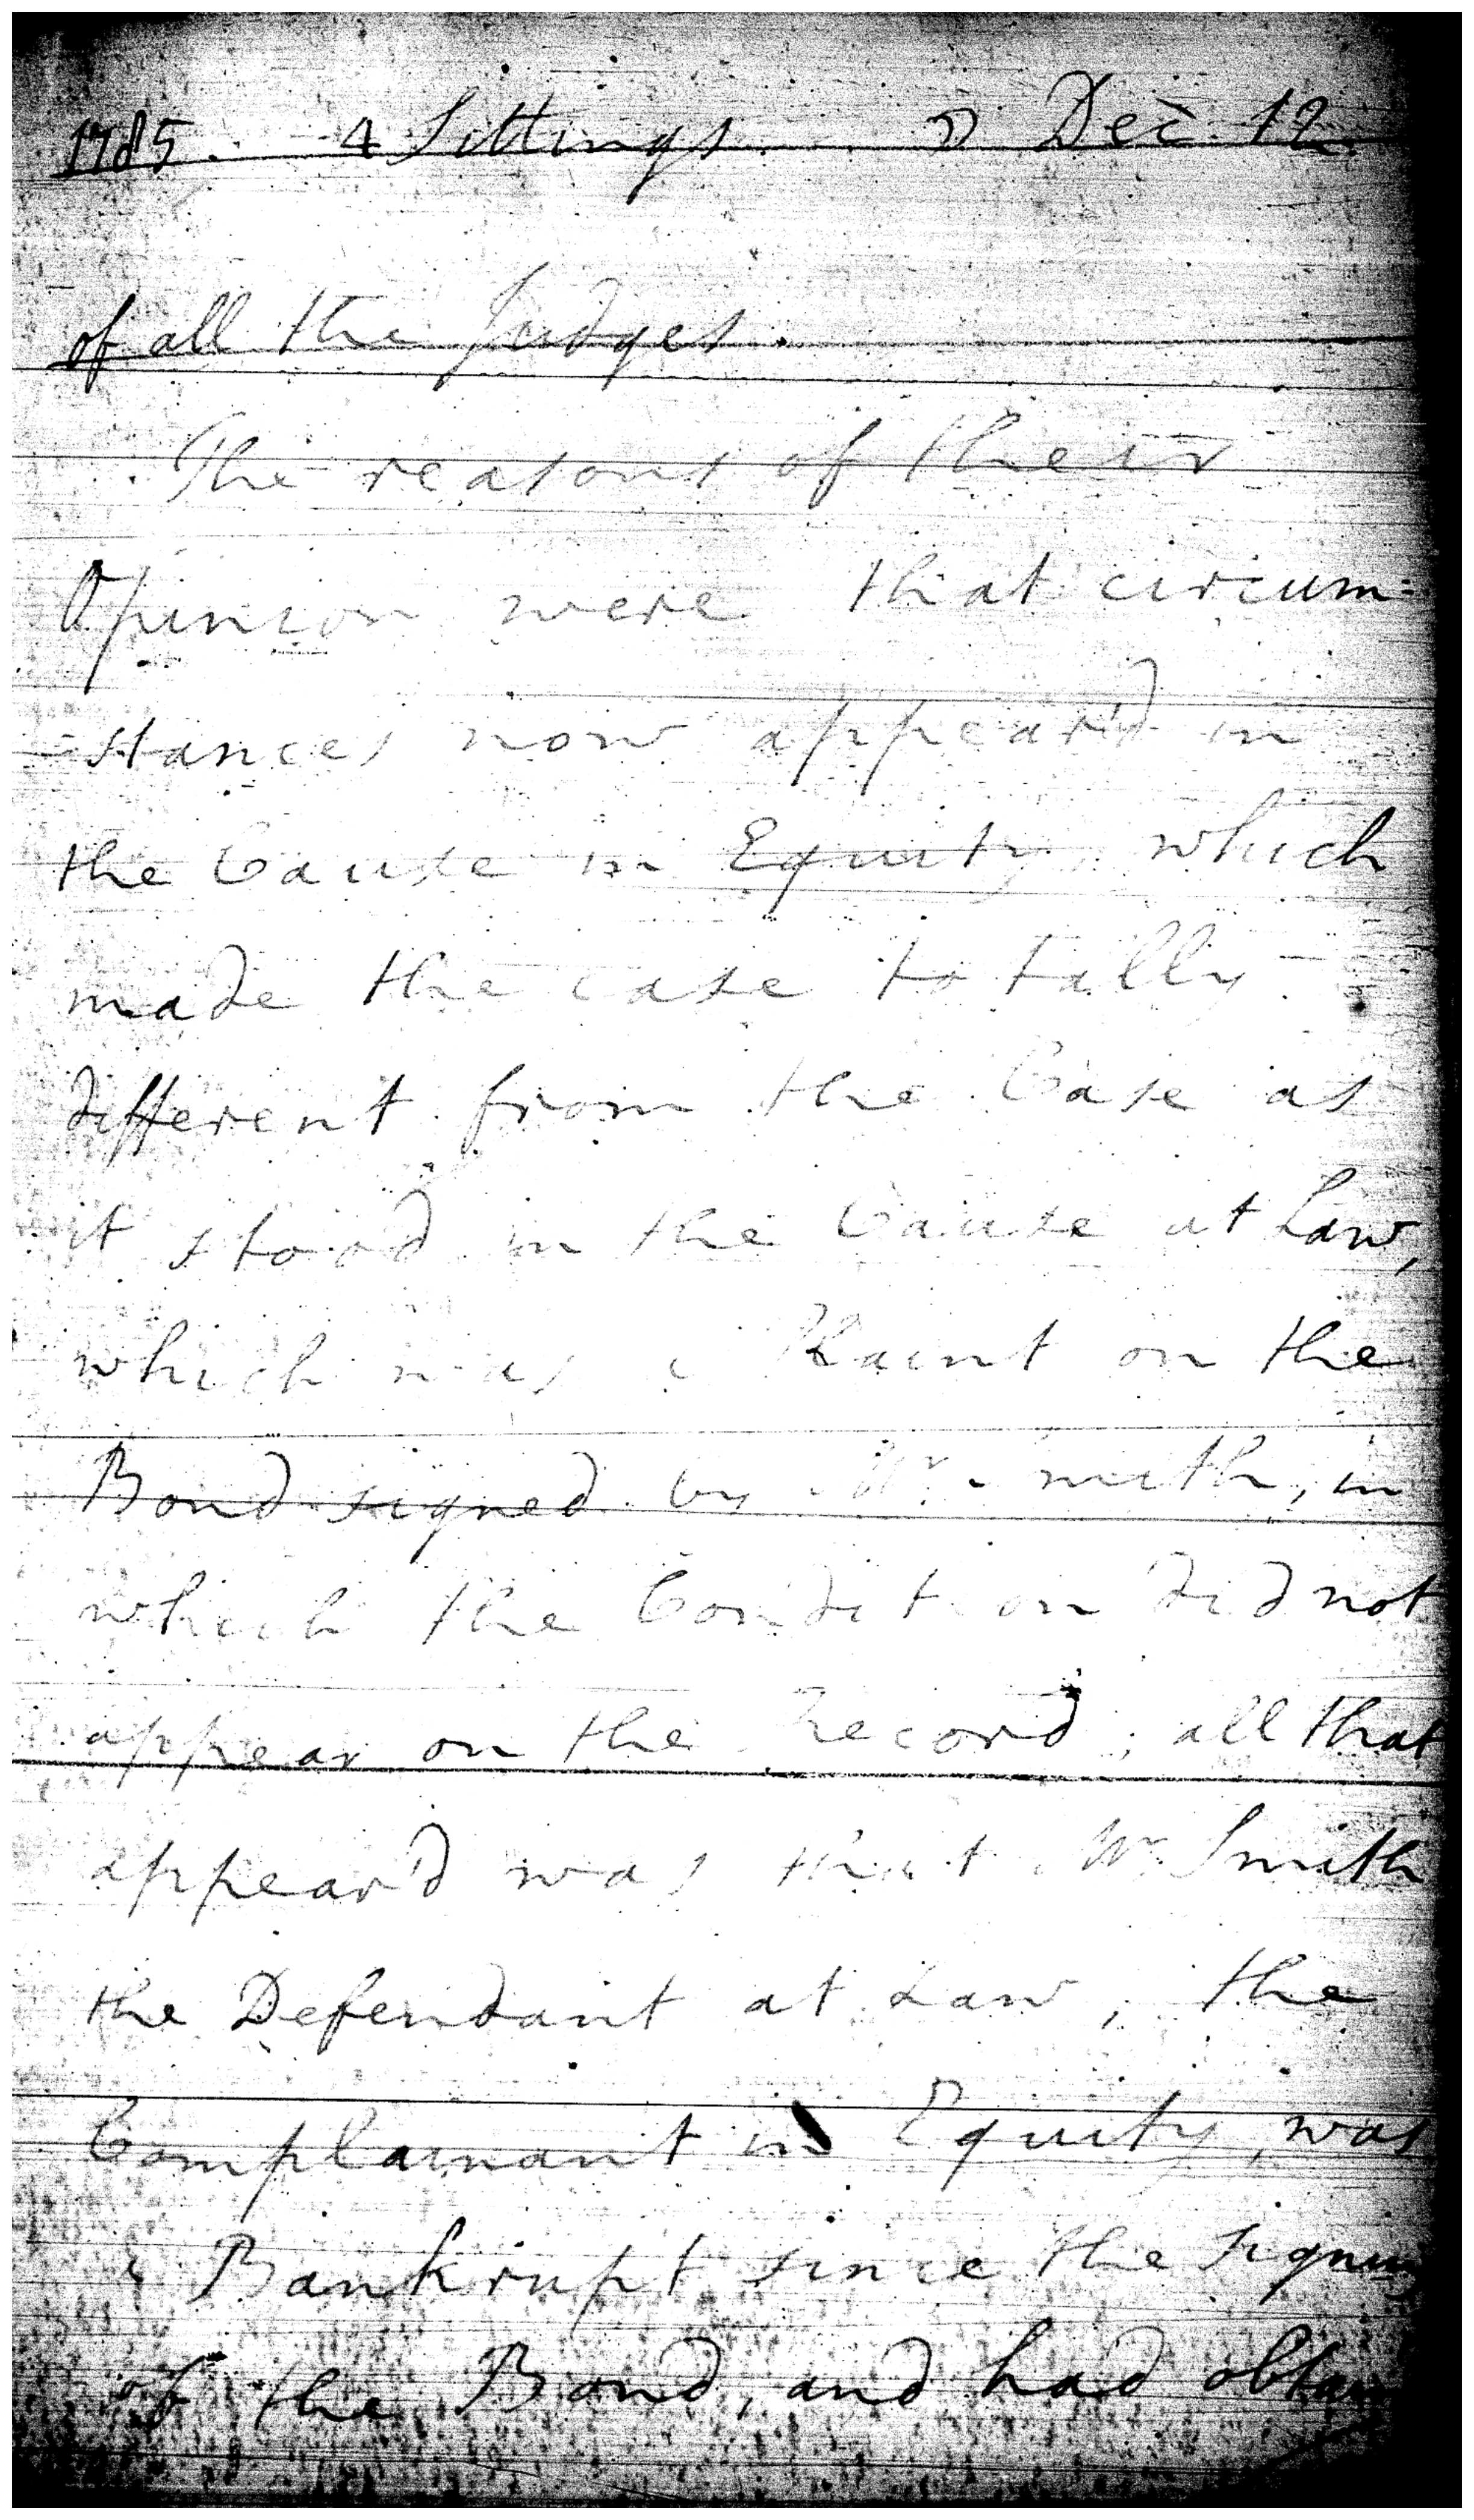 1785. 4 Sittings. ☽ Dec 12.
of all the Judges.
The reasons of their
Opinion were that circum=
=stances now appear'd in
the Cause in Equity, which
made the case totally
different from the Case as
it stood in the Cause at Law,
which was a Plaint on the
Bond signed by Mr. Smith, in
which the Condition did not
appear on the Record; all that
appear'd was that Mr Smith
the Defendant at Law, the
Complainant in Equity, was
a Bankrupt since the signing
of the Bond, and had obtain